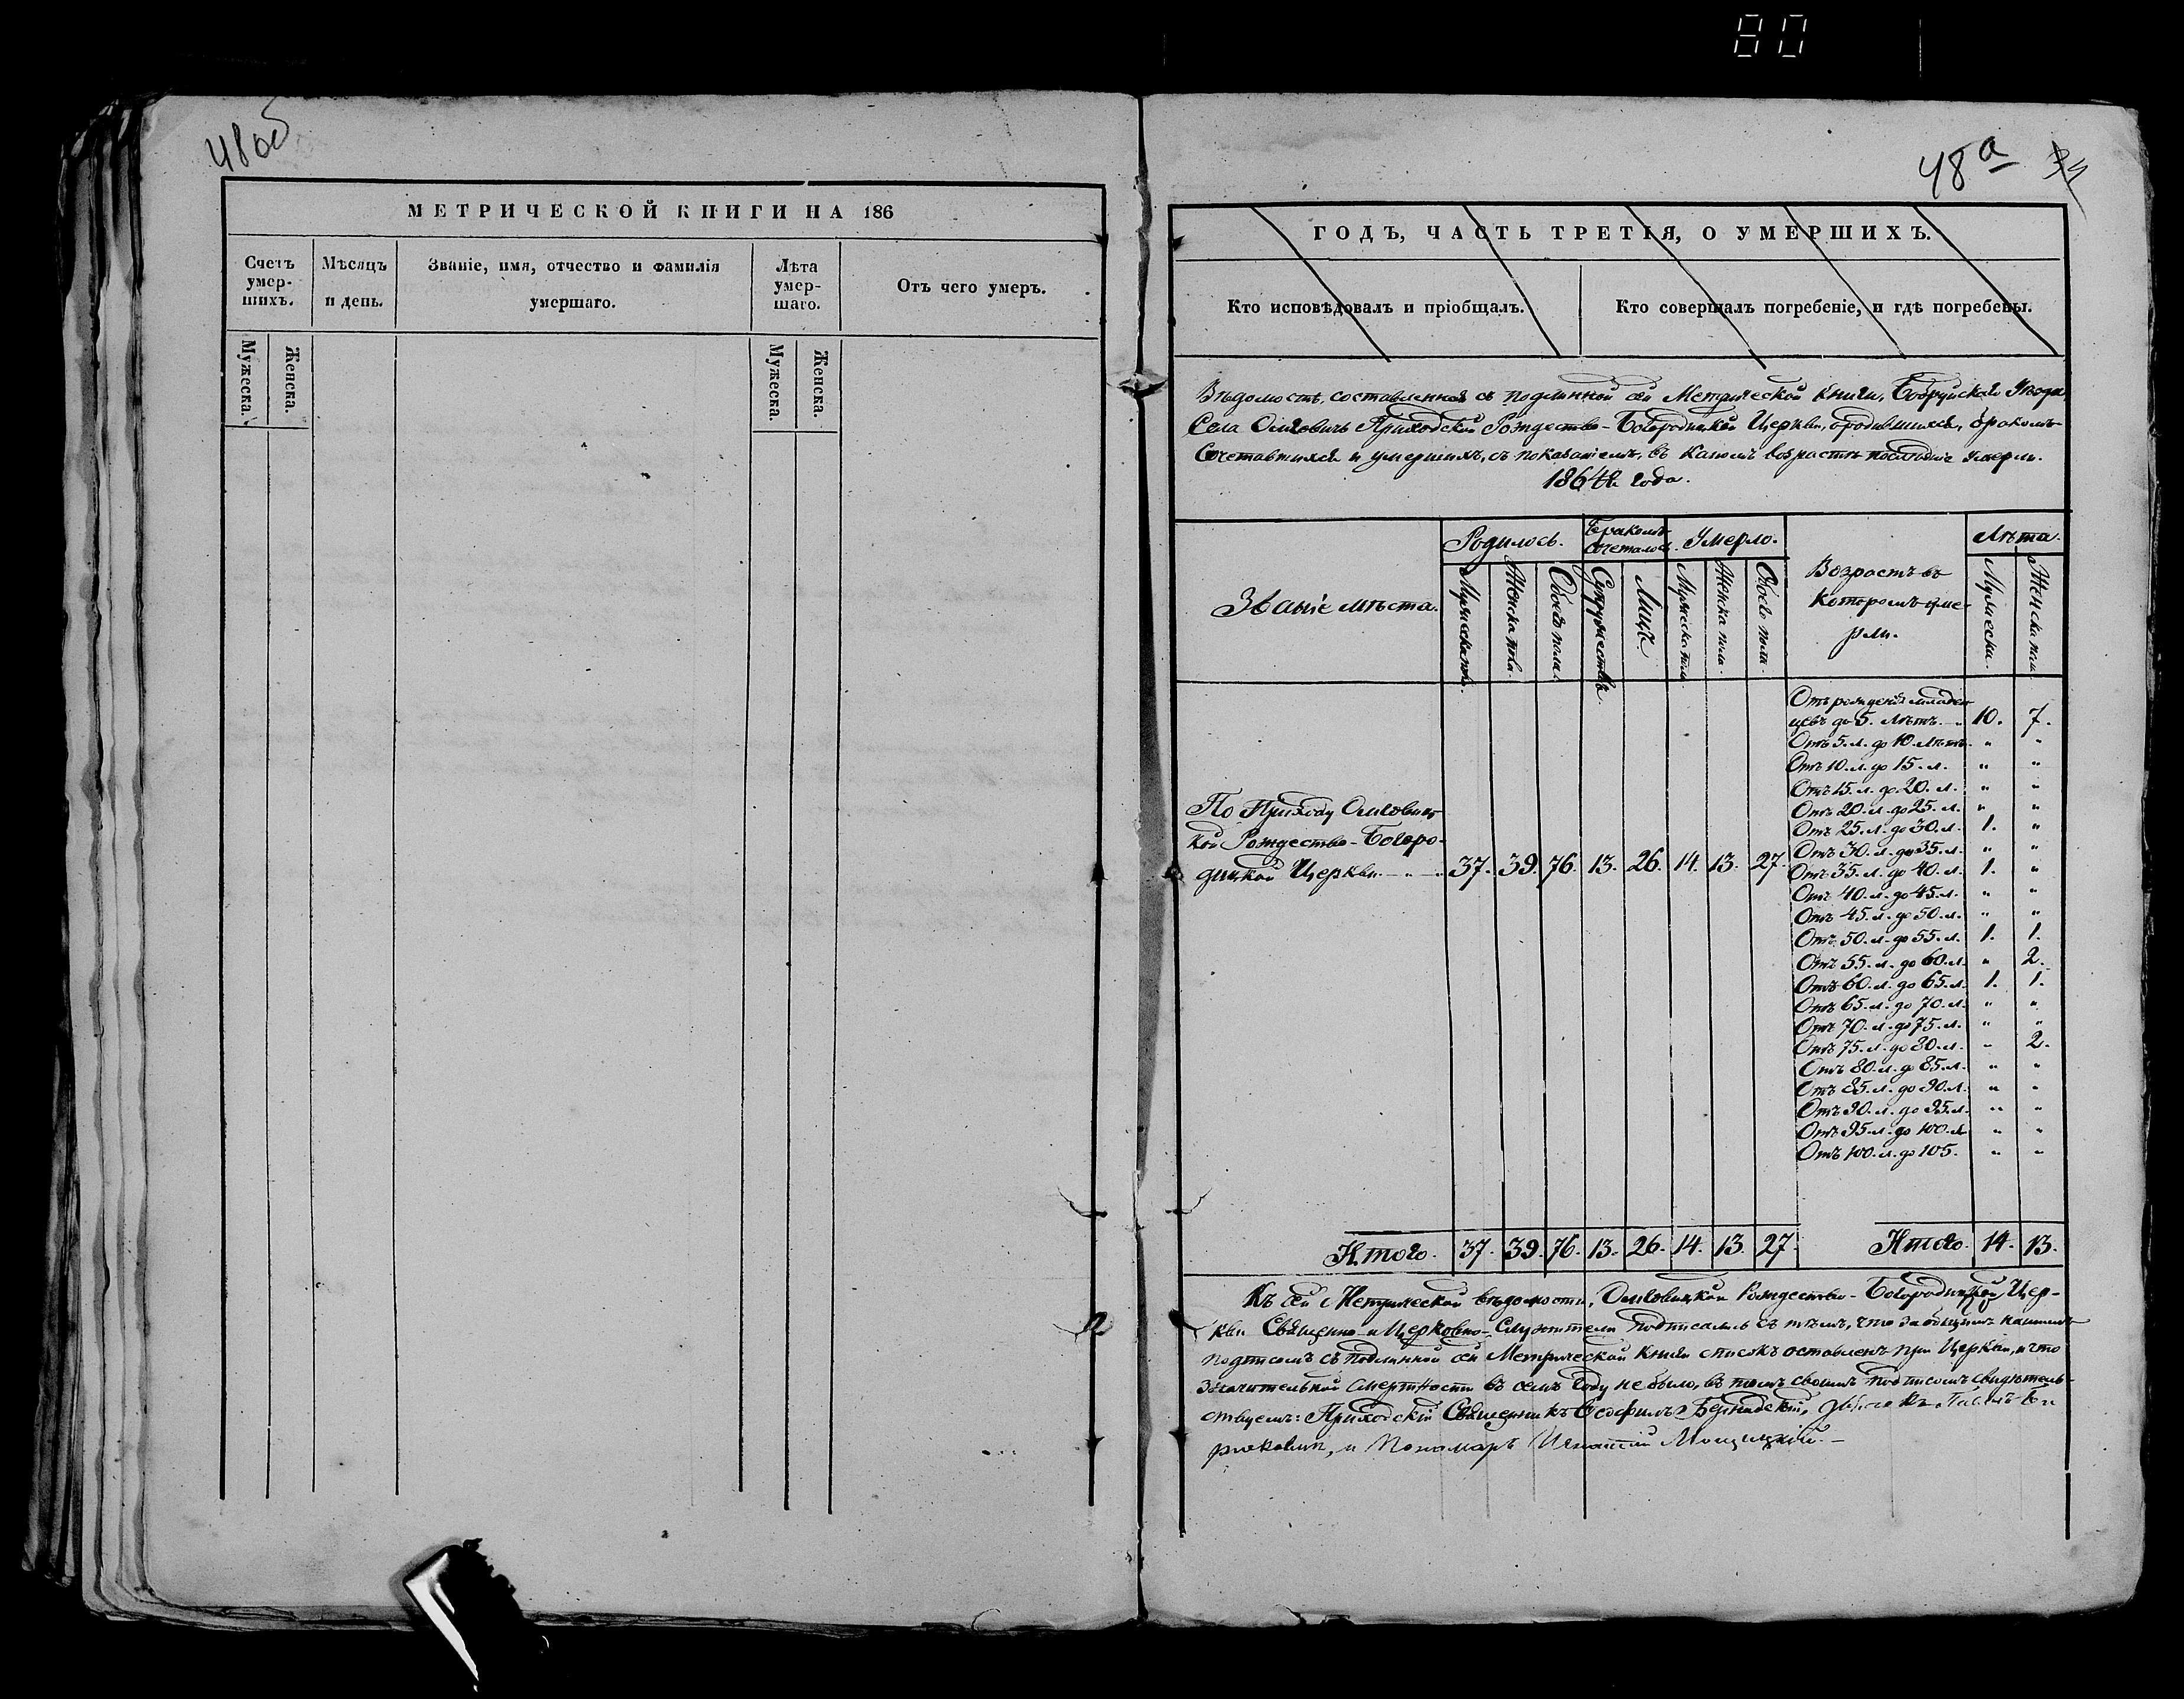 80
48об
МЕТРИЧЕСКОЙ КНИГИ НА 186
Счетъ умер-шихъ.
Мѣсяцъ и день.
Званіе, имя, отчество и фамилія умершаго.
Лѣта умер-шаго.
Отъ чего умеръ.
Мужеска.
Женска.
Мужеска.
Женска.
48а
ГОДЪ, ЧАСТЬ ТРЕТІЯ, О УМЕРШИХЪ.
Кто исповѣдовалъ и пріобщалъ.
Кто совершалъ погребеніе, и гдѣ погребены.
Вѣдомость, составленная съ подлинной сей Метрической Книги, Бобруйскаго Уѣзда
Села Омговичъ Приходской Рождество-Богородицкой Церкви, о родившихся, бракомъ
Сочетавшихся и умершихъ, съ показаніемъ, въ какомъ возрастѣ послѣдніе умерли.
1864го года.
Званіе мѣста.
Родилось.
Бракомъ Сочеталось.
Умерло.
Возрастъ въ
которомъ уме-
рли.
Лѣта.
Мужеска пола.
Женска пола.
Обоего пола.
Супружествъ.
Лицъ.
Мужеска пола.
Женска пола.
Обоего пола.
Мужеска.
Женска пола.
Отъ рожденія младен-
цевъ до 5. Лѣтъ. 10. 7.
Отъ 5. л. до 10. Лѣтъ. " "
Отъ 10. л. до 15. л. " "
Отъ 15. л. до 20. л. " "
Отъ 20. л. до 25. л. " "
Отъ 25. л. до 30. л. 1. "
Отъ 30. л. до 35. л. " "
Отъ 35. л. до 40. л. 1. "
Отъ 40. л. до 45. л. " "
Отъ 45. л. до 50. л. " "
Отъ 50. л. до 55. л. 1. 1.
Отъ 55. л. до 60. л. " 2.
Отъ 60. л. до 65. л. 1. 1.
Отъ 65. л. до 70. л. " "
Отъ 70. л. до 75. л. " "
Отъ 75. л. до 80. л. " 2.
Отъ 80. л. до 85. л. " "
Отъ 85. л. до 90. л. " "
Отъ 90. л. до 95. л. " "
Отъ 95. л. до 100. л. " "
Отъ 100. л. до 105. " "
По Приходу Омговиц-
кой Рождество-Богоро-
дицкой Церкви 37. 39. 76. 13. 26. 14. 13. 27.
Итого. 37. 39. 76. 13. 26. 14. 13. 27. Итого. 14. 13.
Къ сей Метрической вѣдомости, Омговицкой Рождество-Богородицкой Цер-
кви Священно-и Церковно-Служители подписались съ тѣмъ, что за общимъ нашимъ
подписомъ съ подлинной сей Метрической Книги списокъ оставленъ при Церкви, и что
значительной смертности въ семъ году не было, въ томъ своимъ подписомъ свидѣтель-
ствуемъ: Приходскій Священникъ Ѳеофилъ
и Пономаръ Игнатій Мощицкій.